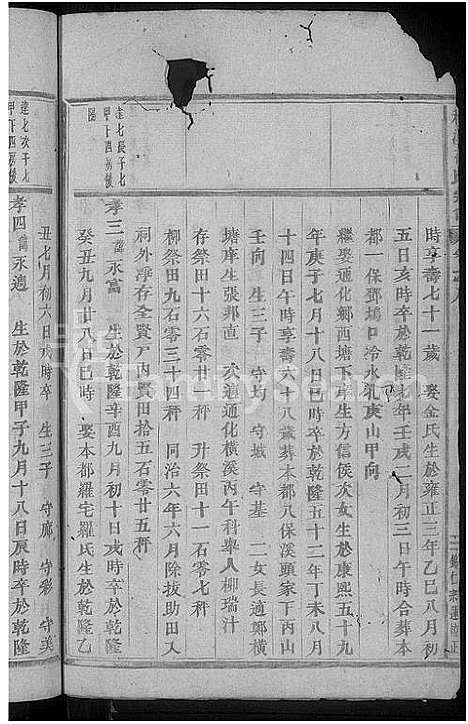 時享壽七十一歲 娶金氏生於雍正三年乙巳八月初
五日亥時卒於乾隆七年壬戌二月初三日午時合葬本
都一保鄧塢口冷水乳庚山甲向
繼娶通化鄉西塘下岸生方信侯次女生於康熙五十九
年庚子七月十八日巳時卒於乾隆五十二年丁未八月
十四日午時享壽六十八歲葬本都八保溪頭家下丙山
壬向 生三子 守均 守城 守基 二女長適鄭橫
塘庠生張邦直 次適通化橫溪丙午科舉人柳瑞汁
存祭田六石零廿一秤 升祭田十一石零七秤
柳祭田九石零三十四秤 同治六年六月除拔助田入
祠外淨存全賢戸内賢田拾五石零廿五秤
達七長子七
甲十四
孝三 諱永富 生於乾隆辛酉九月初十日戌時卒於乾隆
癸丑九月廿八日巳時 娶本都羅宅羅氏生於乾隆乙
丑七月初六日戌時卒 生三子 守廊 守彩 守美
達七次子七
甲十四
孝四 諱永通 生於乾隆甲子九月十八日辰時卒於乾隆
FamilySearch